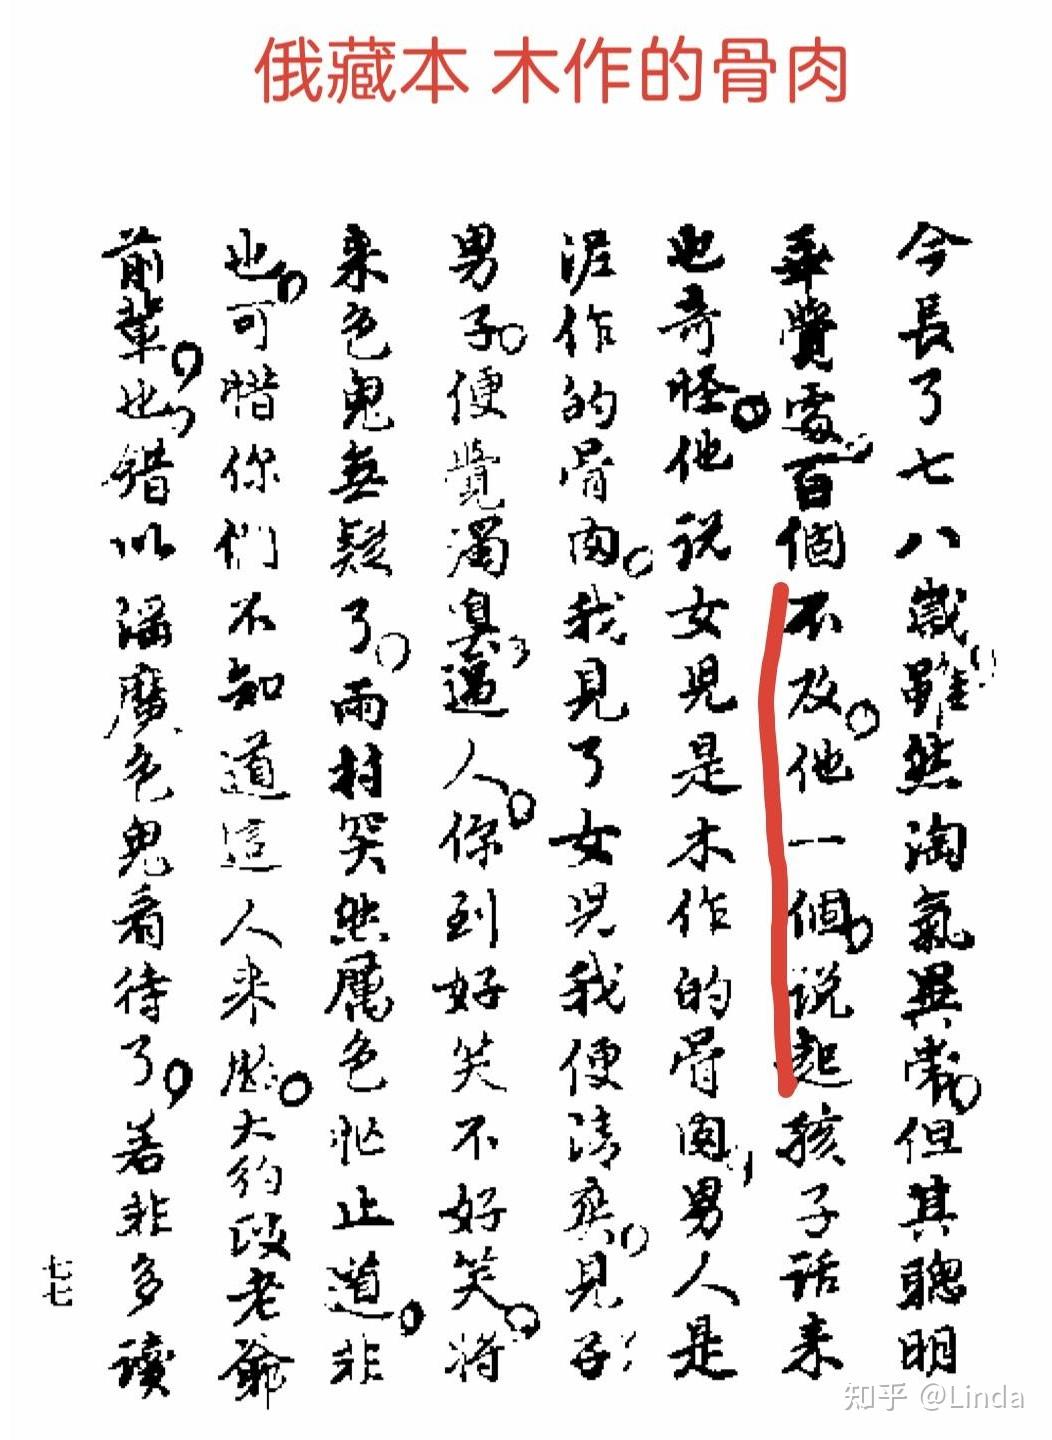 俄藏本 木作的骨肉
今長了七八歲雖然淘氣異常但其聰明
乖覺處百個不及他一個说起孩子话来
也奇怪他说女児是木作的骨肉男人是
泥作的骨肉我見了女児我便清爽見子
男子便覺濁臭逼人你到好笑不好笑将
来色鬼無疑了雨村突然厲色忙止道非
也可惜你們不知道這人来歷大约政老爺
前輩也錯以滛魔色鬼看待了若非多讀
七七
知乎 @Linda